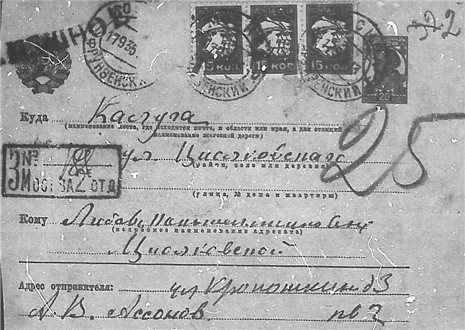 17.9.35
ФРУНЗЕНСКИЙ
15 КОП. 15 КОП. 15 КОП.
Куда Калуга
(наименование места, где находится почта, и области или края, а для станций
наименование железной дороги)
ул. Циолковского
(район, село или деревня)
25
З №
МОСКВА 2 ОТД.
(улица, № дома и квартиры)
Кому Любовь Константиновне
(подробное наименование адресата)
Циолковской
Адрес отправителя: ул Кропоткина д 3
А. В. Ассонов кв 7